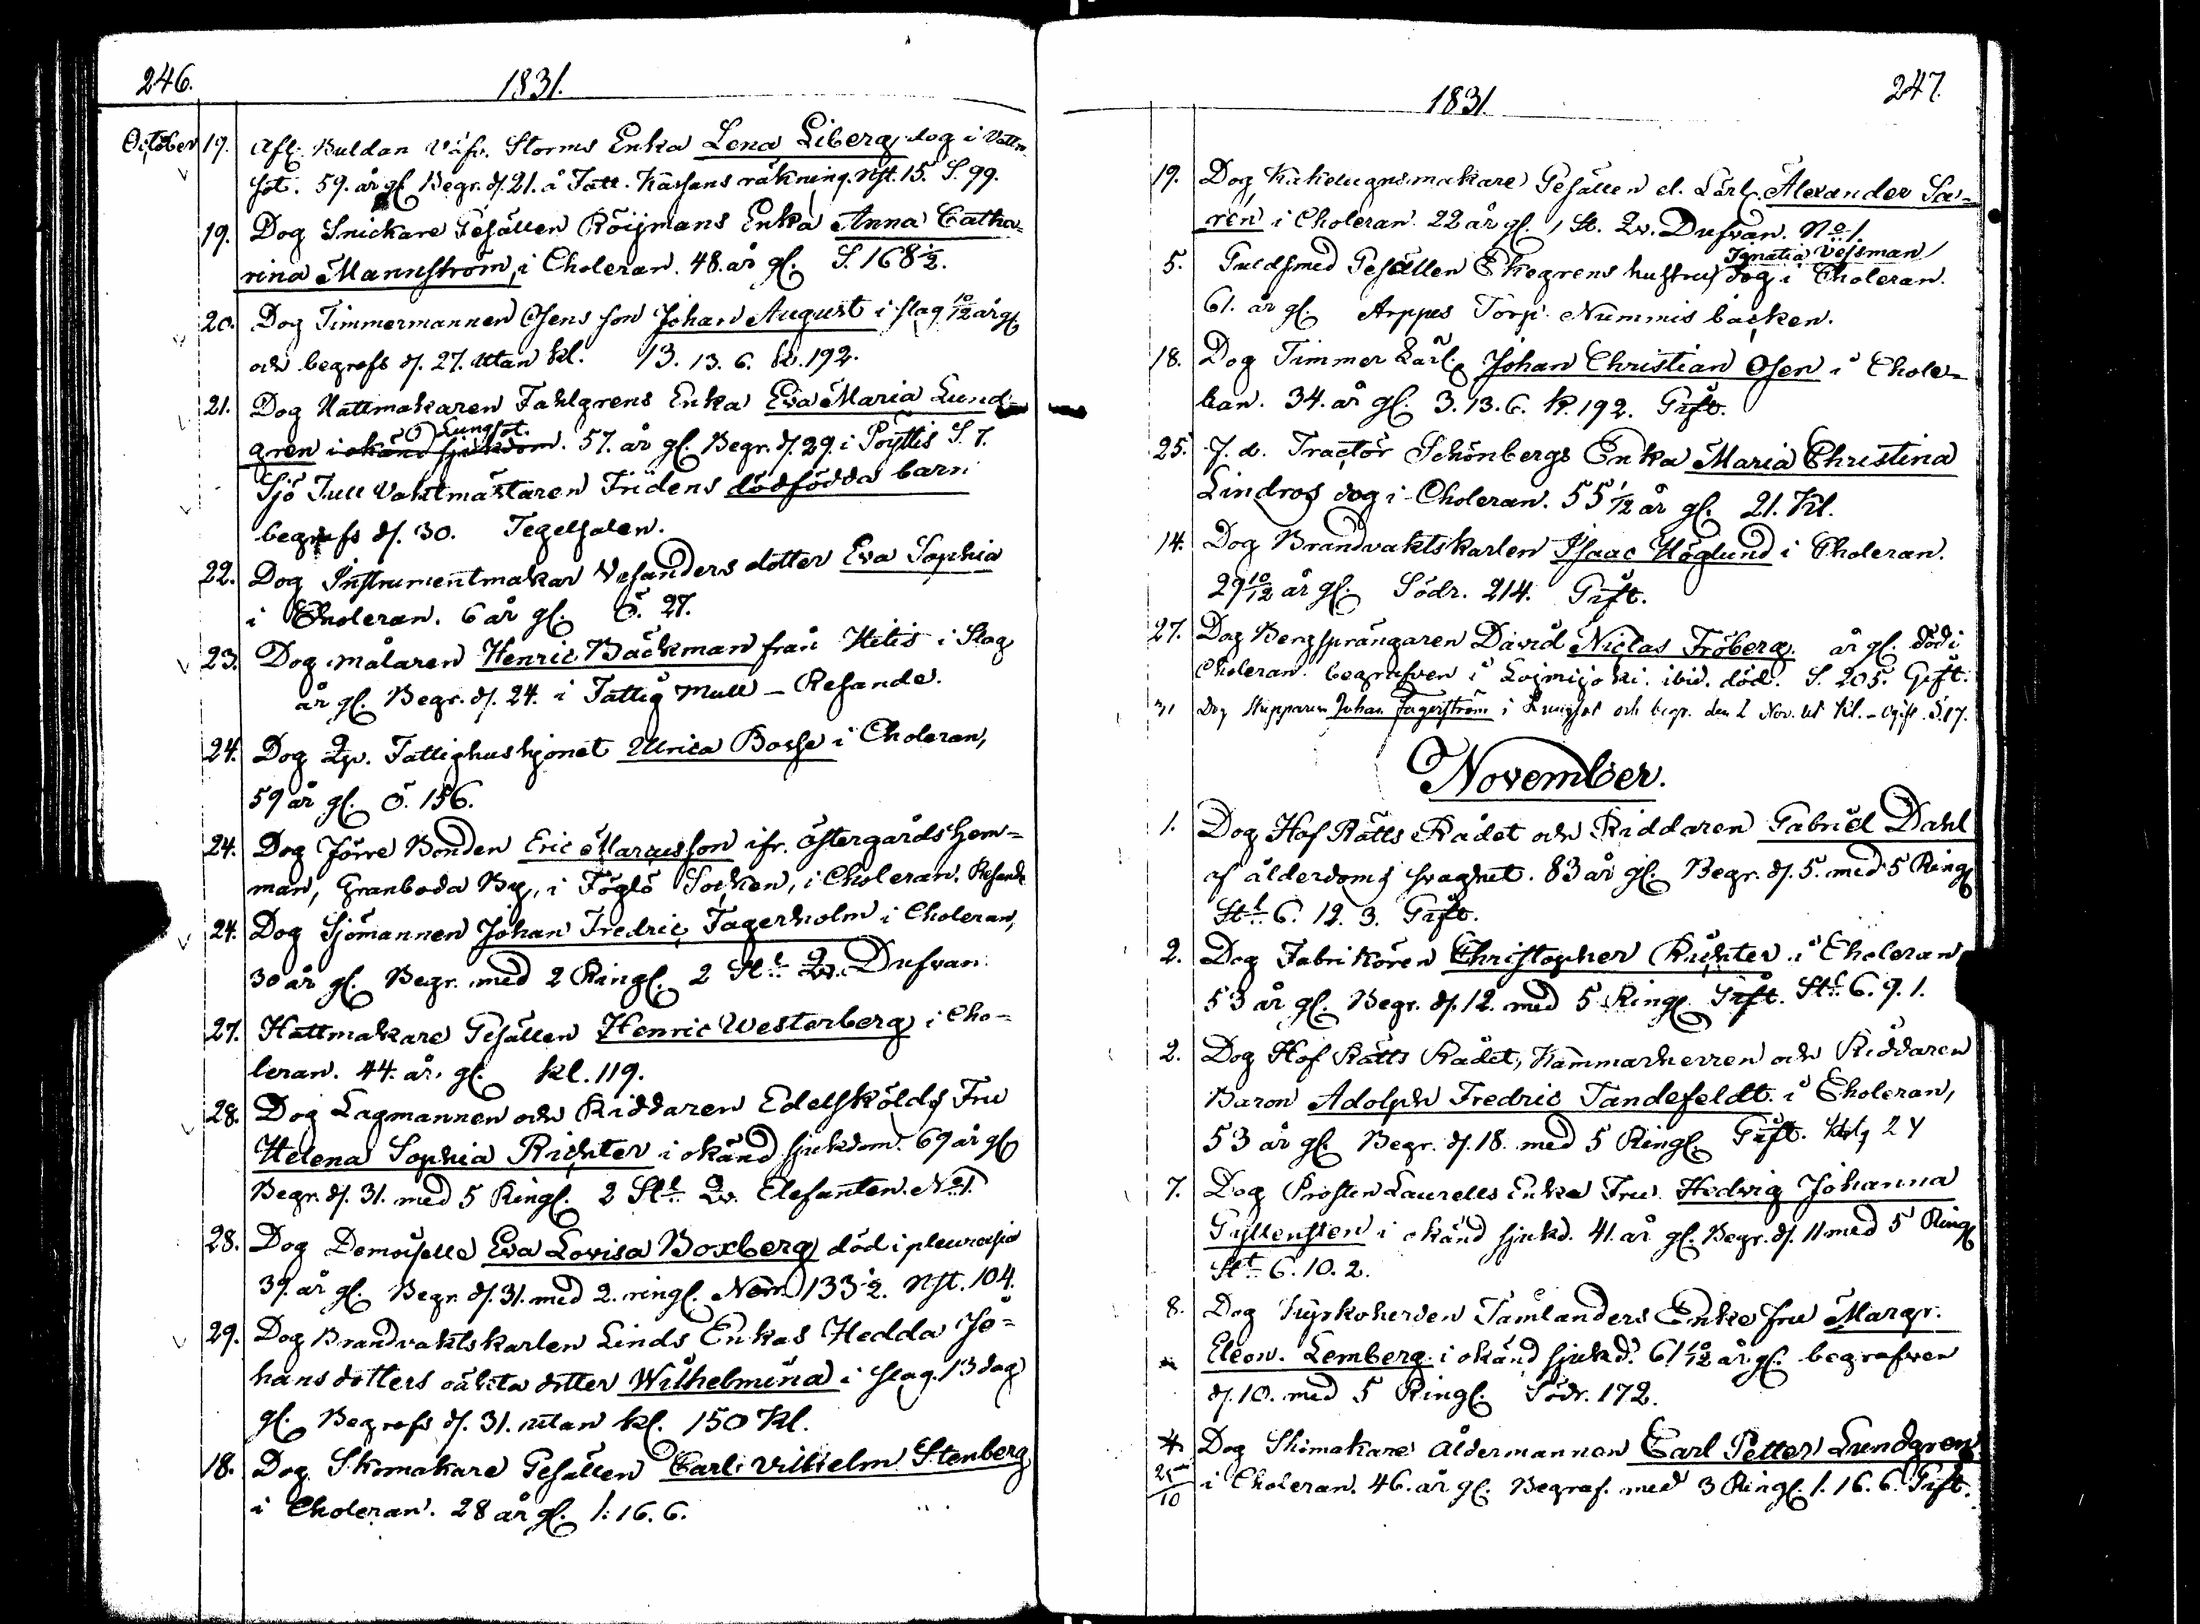 246.
1831.
October 19. Afl. Buldan Väfv. Storms Enka Lena Liberg dog i Vattn
sot. 59. år gl. Begr. d. 21. å Fatt. Kassans räkning. Nst. 15. S. 99.
19. Dog Snickare Gesällen Röijmans Enka Anna Catha-
rina Mannström, i Choleran. 48. år gl. S. 168 1/2.
20. Dog Timmermannen Osens son Johan August i slag 10/12 år gl.
och begrofs d. 27. utan kl. 13. 13. 6. kv. 192.
21. Dog Hattmakaren Fahlgrens Enka Eva Maria Lund-
Lungsot.
gren i okänd sjukdom. 57. år gl. Begr. d. 29. i Pöyttis S. 7.
Sjö Tull Vaktmästaren Fridens dödfödda barn
begrofs d. 30. Tegelsalen.
22. Dog Instrumentmakar Vesanders dotter Eva Sophia
i Choleran. 6 år gl. Ö. 27.
23. Dog målaren Henric Bäckman från Hitis i Slag
år gl. Begr. d. 24. i Fattig Mull - Resande.
24. Dog Qv. Fattighushjonet Ulrica Bosse i Choleran,
59 år gl. Ö. 156.
24. Dog Förre Bonden Eric Marcusson ifr. Östergårds hem-
man, Granboda By, i Föglö Socken, i Choleran. Resande
24. Dog Sjömannen Johan Fredric Fagerholm i Choleran,
30 år gl. Begr. med 2 Ringl. 2 St. Qv. Dufvan.
27. Hattmakare Gesällen Henric Westerberg i Cho-
leran. 44. år gl. Kl. 119.
28. Dog Lagmannen och Riddaren Edelskölds Fru
Helena Sophia Richter i okänd sjukdom. 69 år gl.
Begr. d. 31. med 5 Ringl. 2 St. Qv. Elefanten. No 1.
28. Dog Demoiselle Eva Lovisa Boxberg död i pleuresia
39. år gl. Begr. d. 31. med 2. ringl. Norr. 133 1/2. Nst. 104.
29. Dog Brandvaktskarlen Linds Enkas Hedda Jo-
hansdotters oäkta dotter Wilhelmina i slag. 13 dag
gl. Begrofs d. 31. utan kl. 150 Kl.
18. Dog Skomakare Gesällen Carl Vilhelm Stenberg
i Choleran. 28 år gl. 1. 16. 6.
1831.
247.
19. Dog Kakelugnsmakare Gesällen el. Lärl. Alexander Sa-
ren i Choleran. 22 år gl. 1 St. Qv. Dufvan. No 1.
Ignatia Vejsman
5. Guldsmed Gesällen Ekegrens hustru dog i Choleran.
61. år gl. Arppes Torp. Nummis backen.
18. Dog Timmer Karl. Johan Christian Osen i Chole-
ran. 34. år gl. 3. 13. 6. kv. 192. Gift.
25. F. d. Tractör Schönbergs Enka Maria Christina
Lindros dog i Choleran. 55 1/12 år gl. 21. Kl.
14. Dog Brandvaktskarlen Isaac Höglund i Choleran.
29 10/12 år gl. Södr. 214. Gift.
27. Dog Bergsprängaren David Niclas Fröberg. år gl. död i
Choleran. begrafven i Loimijoki. ibid. död. S. 205. Gift.
31 Dog Skepparen Johan Fagerström i Lungsot och begr. den 2 Nov. ut Kl. - Ogift. S. 17.
November.
1. Dog Hof Rätts Rådet och Riddaren Gabriel Dahl
af ålderdoms svaghet. 83 år gl. Begr. d. 5. med 5 Ringl.
St. 6. 12. 3. Gift.
2. Dog Fabrikören Christopher Richter i Choleran
53 år gl. Begr. d. 12. med 5 Ringl. Gift. St. 6. 9. 1.
2. Dog Hof Rätts Rådet, Kammarherren och Riddaren
Baron Adolph Fredric Tandefeldt i Choleran,
53 år gl. Begr. d. 18. med 5 Ringl. Gift. 24
7. Dog Prosten Laurells Enka Fru Hedvig Johanna
Gyllensten i okänd sjukd. 41. år gl. Begr. d. 11 med 5 Ringl.
St. 6. 10. 2.
8. Dog Kyrkoherden Tamlanders Enke fru Margr.
Eleon. Lemberg i okänd sjukd. 61 10/12 år gl. begrafven
d. 10. med 5 Ringl. Södr. 172.
Dog Skomakare Åldermannen Carl Petter Lundgren
25/10 i Choleran. 46. år gl. Begraf. med 3 Ringl. 1. 16. 6. Gift.